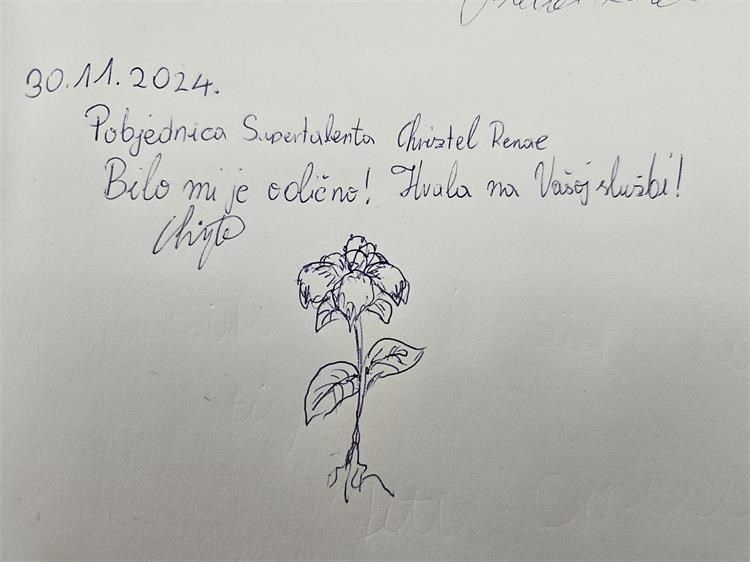 30.11.2024.
Pobjednica Supertalenta Christel Renae
Bilo mi je odlično! Hvala na Vašoj službi!